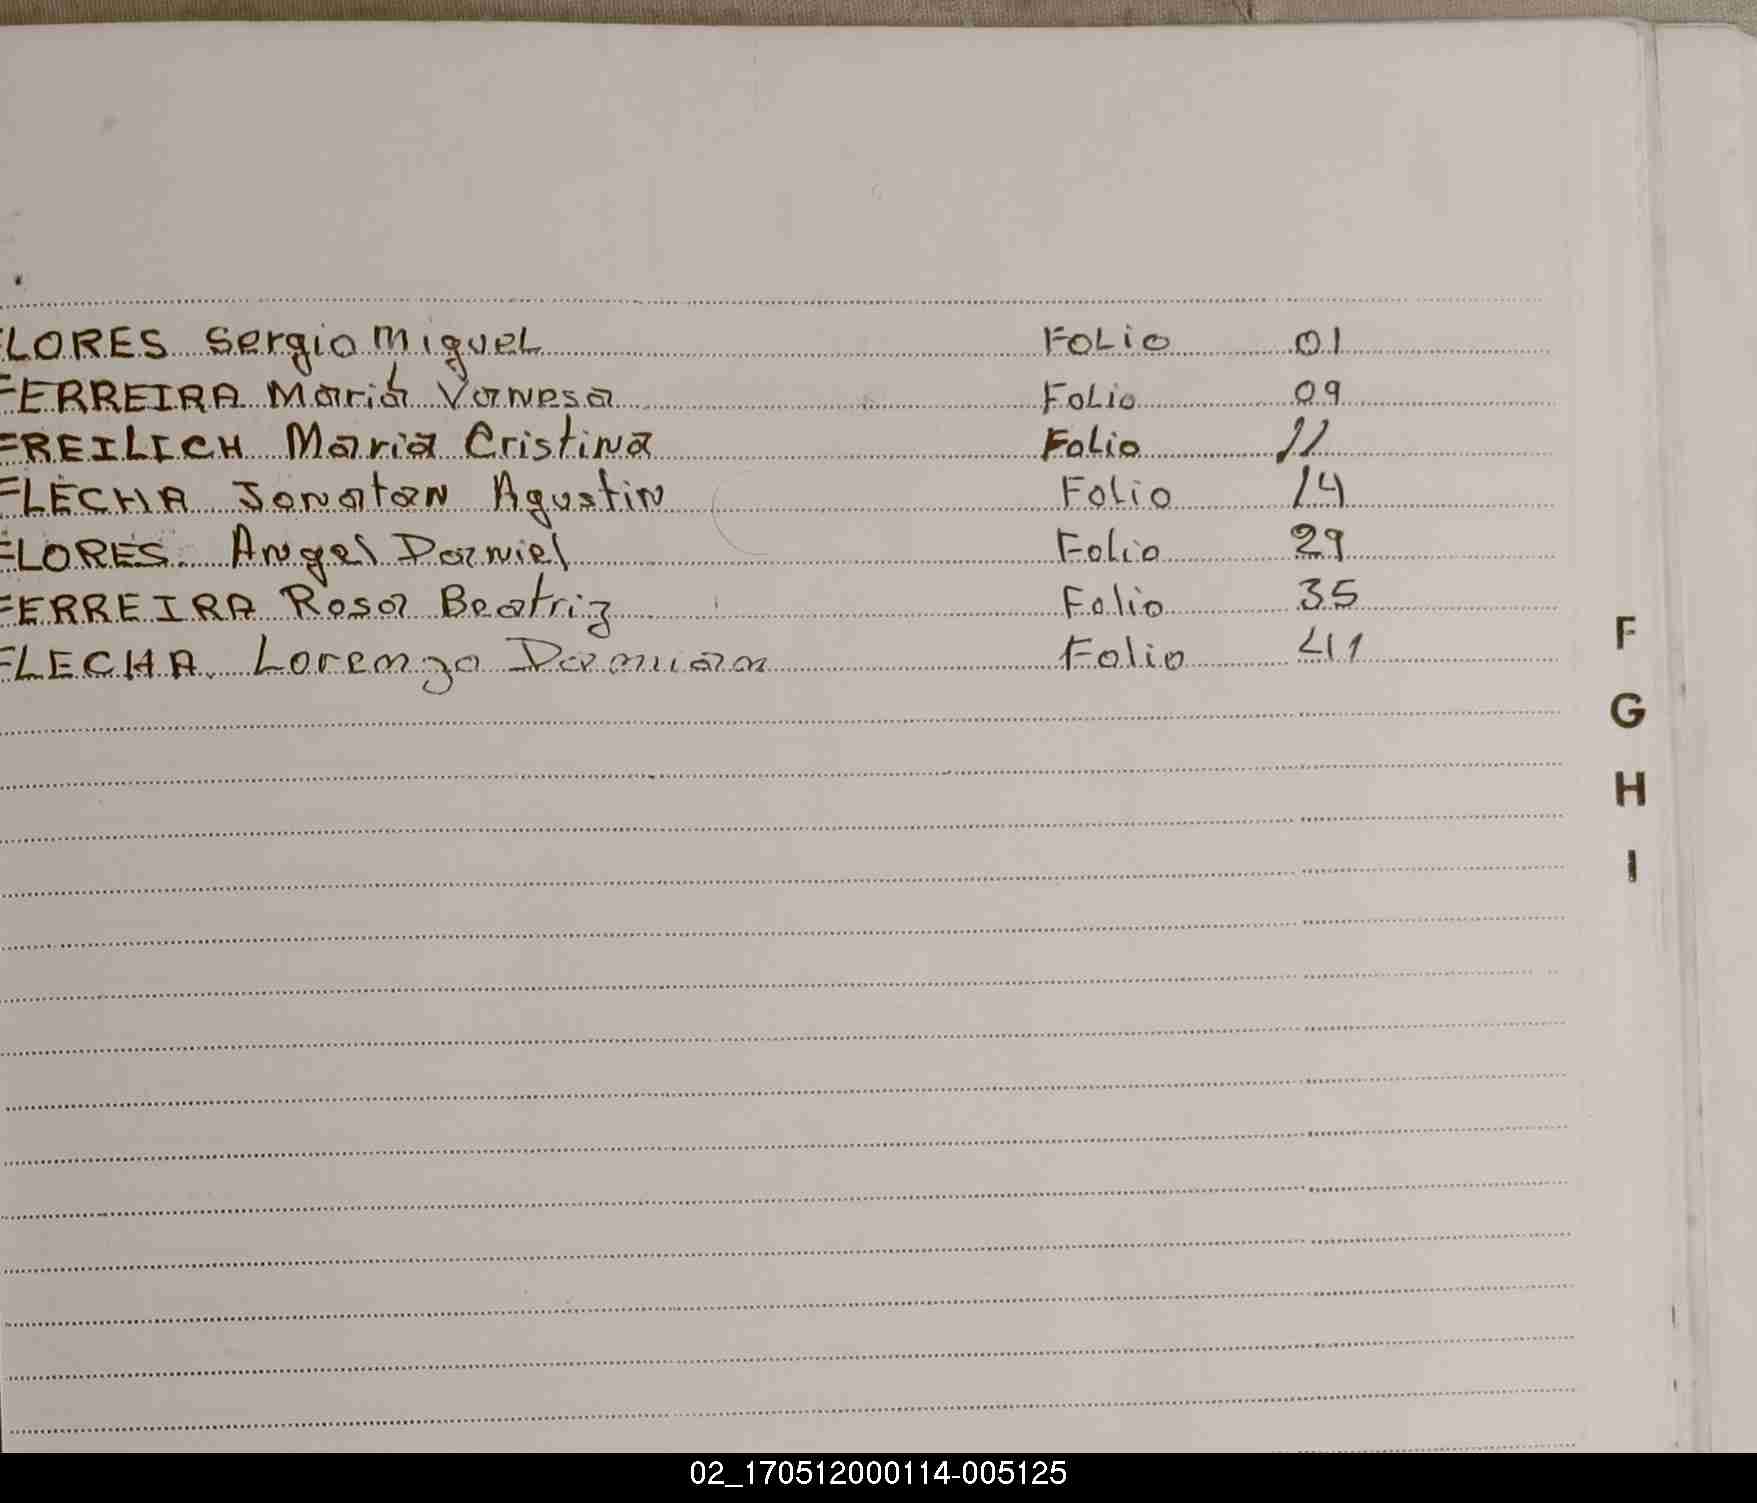 FLORES Sergio Miguel Folio 01
FERREIRA Maria Vanesa Folio 09
FREILICH Maria Cristina Folio 11
FLECHA Jonatan Agustin Folio 14
FLORES Angel Daniel Folio 29
FERREIRA Rosa Beatriz Folio 35
FLECHA Lorenzo Damian Folio 41
F
G
H
I
02_170512000114-005125